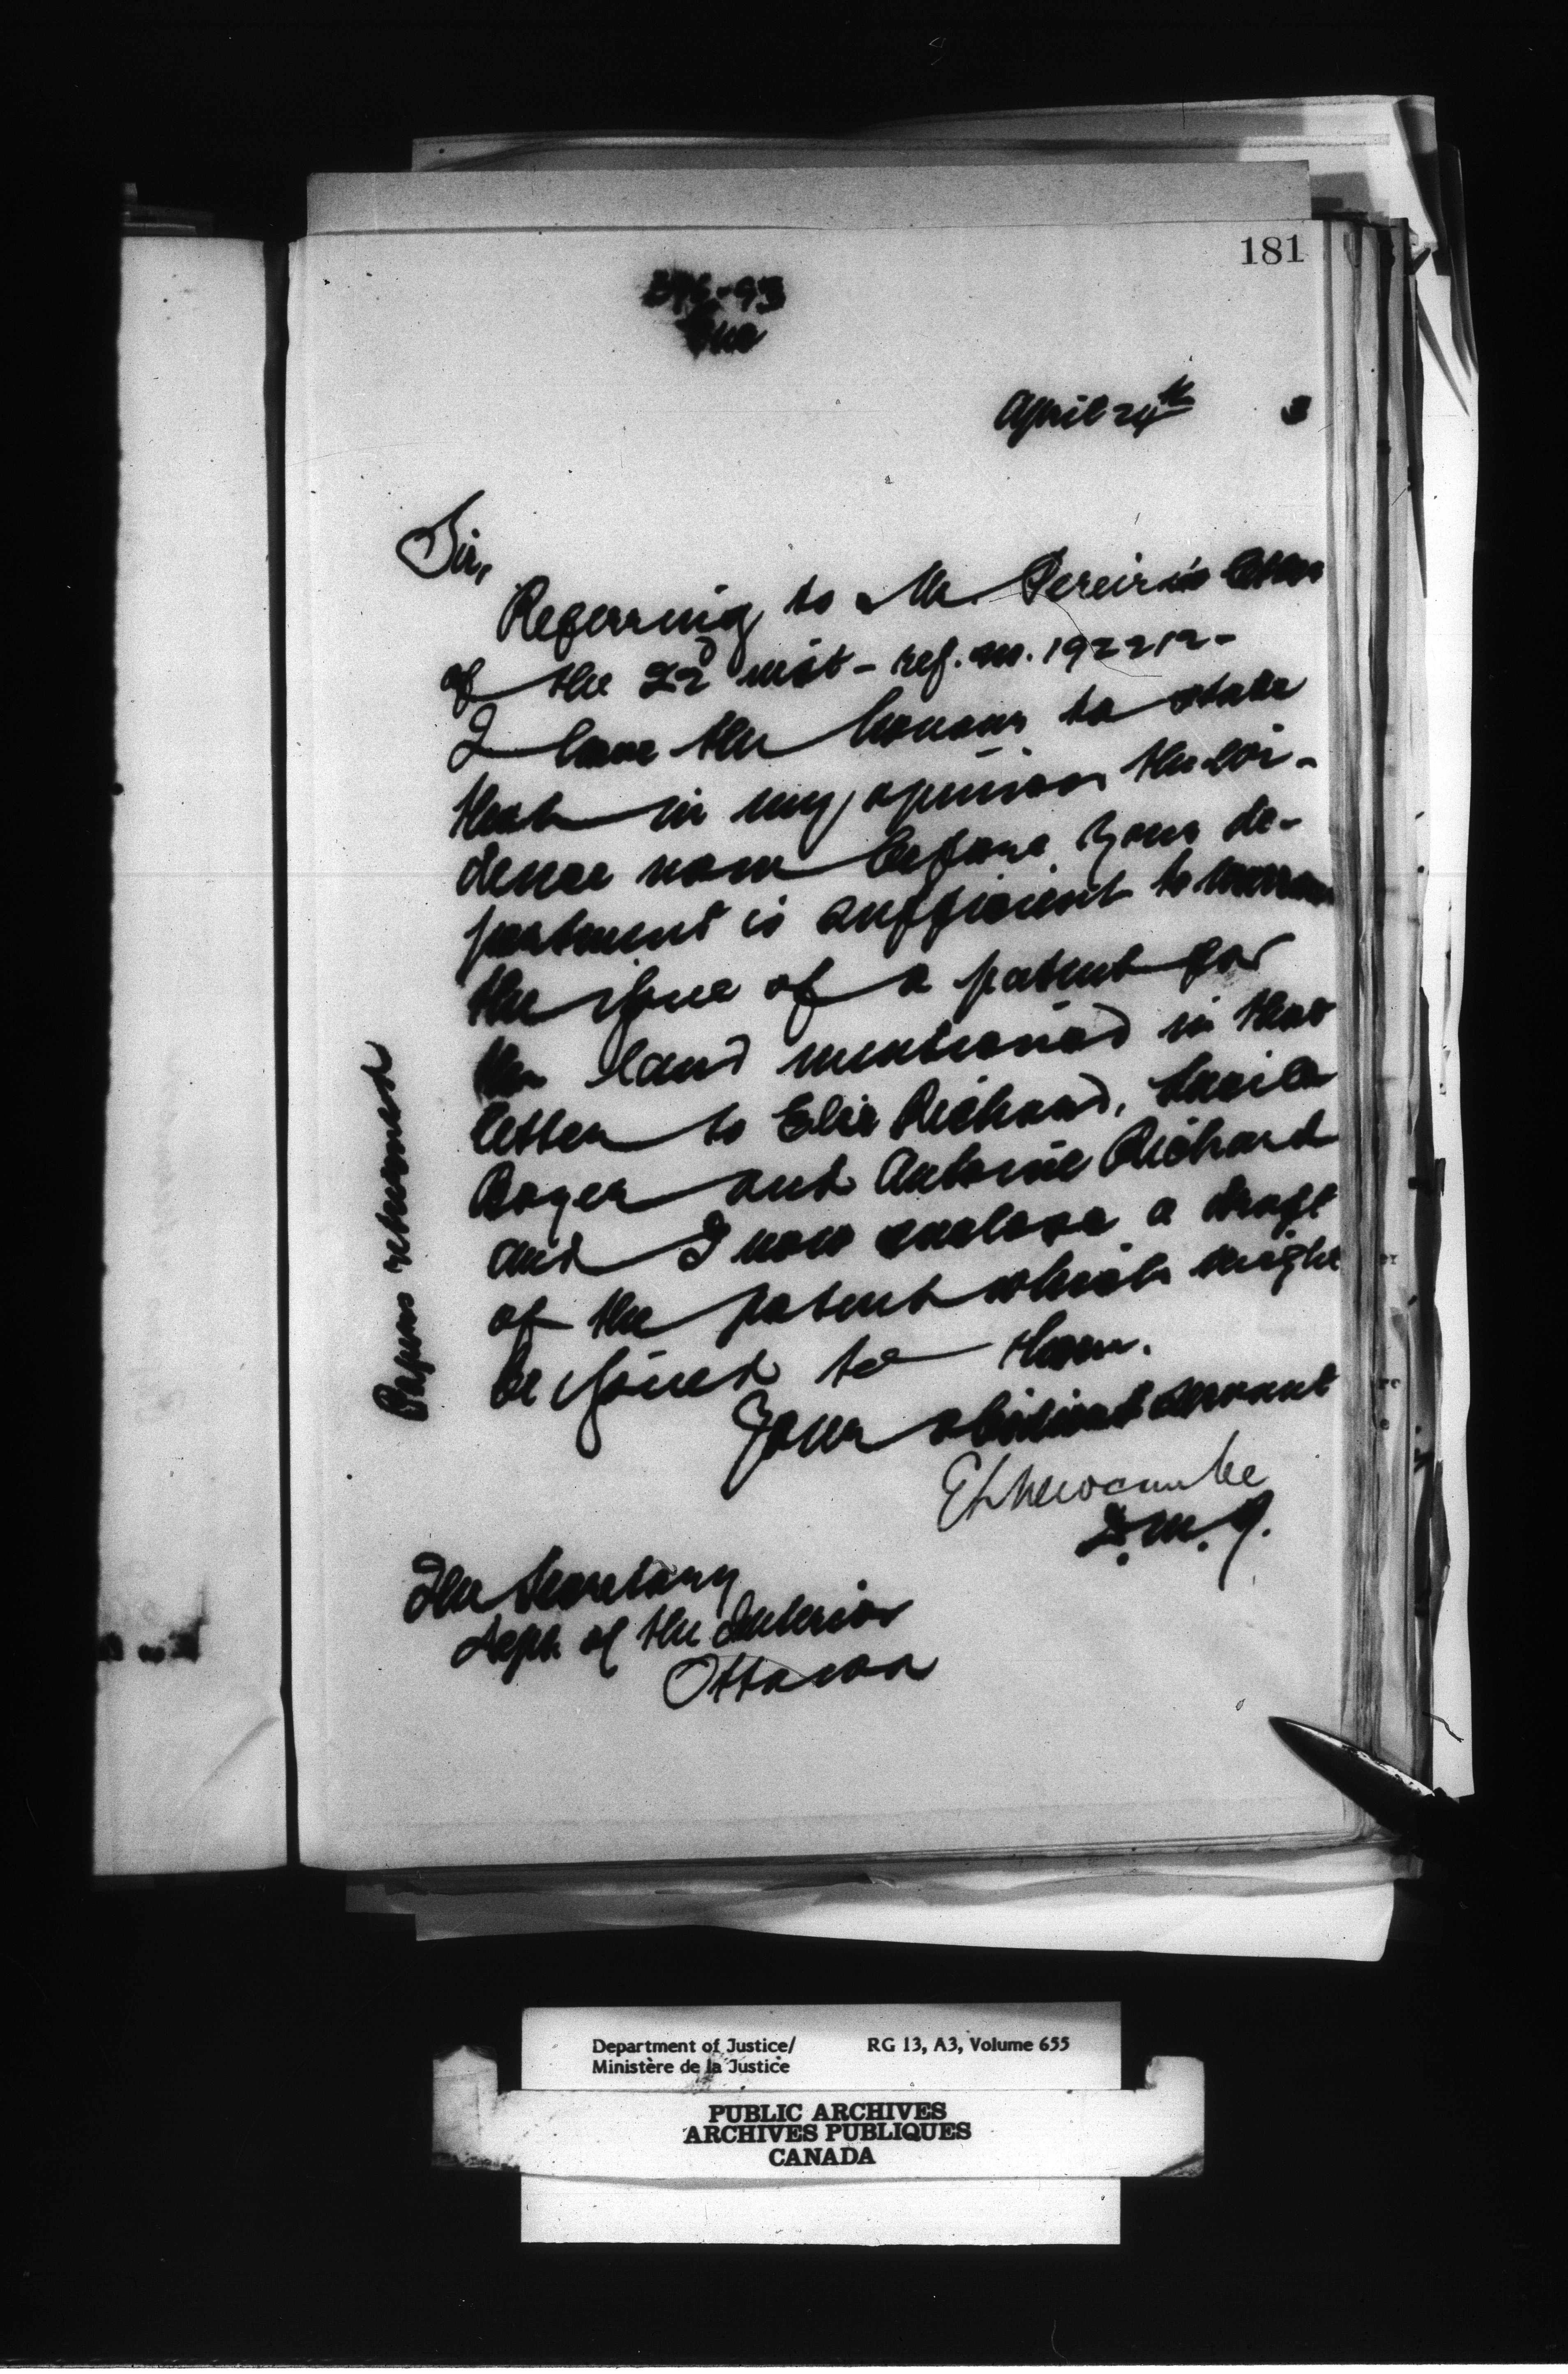 181
396-93
April 24th 3
Sir,
Referring to Mr. Pereira's letter
of the 22d inst - ref. no. 192212 -
I have the honour to state
that in my opinion the evi-
dence now before your de-
partment is sufficient to warrant
the issue of a patent for
the land mentioned in that
letter to Elie Richard,
Boyer and Antoine Richard
and I now enclose a draft
of the patent which might
be issued to them.
Your obedient servant
E L Newcombe
D.M.J.
Papers returned
The Secretary
Dept. of the Interior
Ottawa
Department of Justice/ RG 13, A3, Volume 655
Ministère de la Justice
PUBLIC ARCHIVES
ARCHIVES PUBLIQUES
CANADA